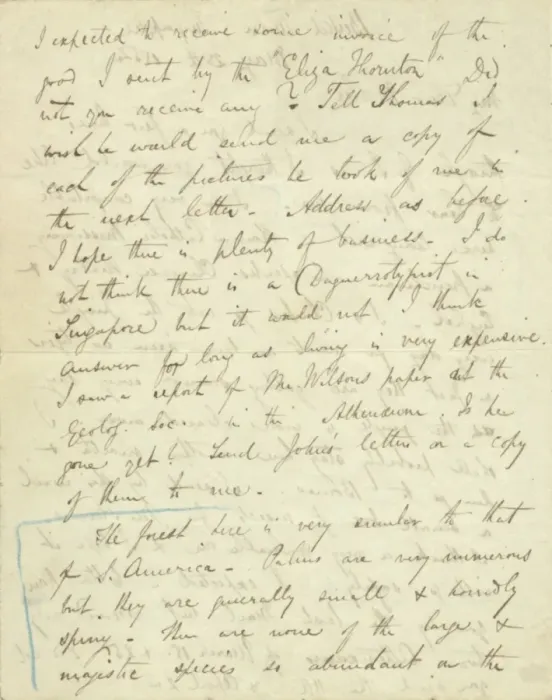 I expected to receive some invoice of the
good I sent by the "Eliza Thornton" Did
not you receive any? Tell Thomas I
wish he would send me a copy of
each of the pictures he took of me in
the next letter - Address as before.
I hope there is plenty of business - I do
not think there is a Daguerrotypist in
Singapore but it would not I think
answer for long as living is very expensive.
I saw a report of Mr. Wilsons paper at the
Geolog. Soc. in the Athenaeum. Is he
gone yet? Send John's letters or a copy
of them to me -
The forest here is very similar to that
of S. America - Palms are very numerous
but they are generally small & horridly
spiny - There are none of the large &
majestic species so abundant on the